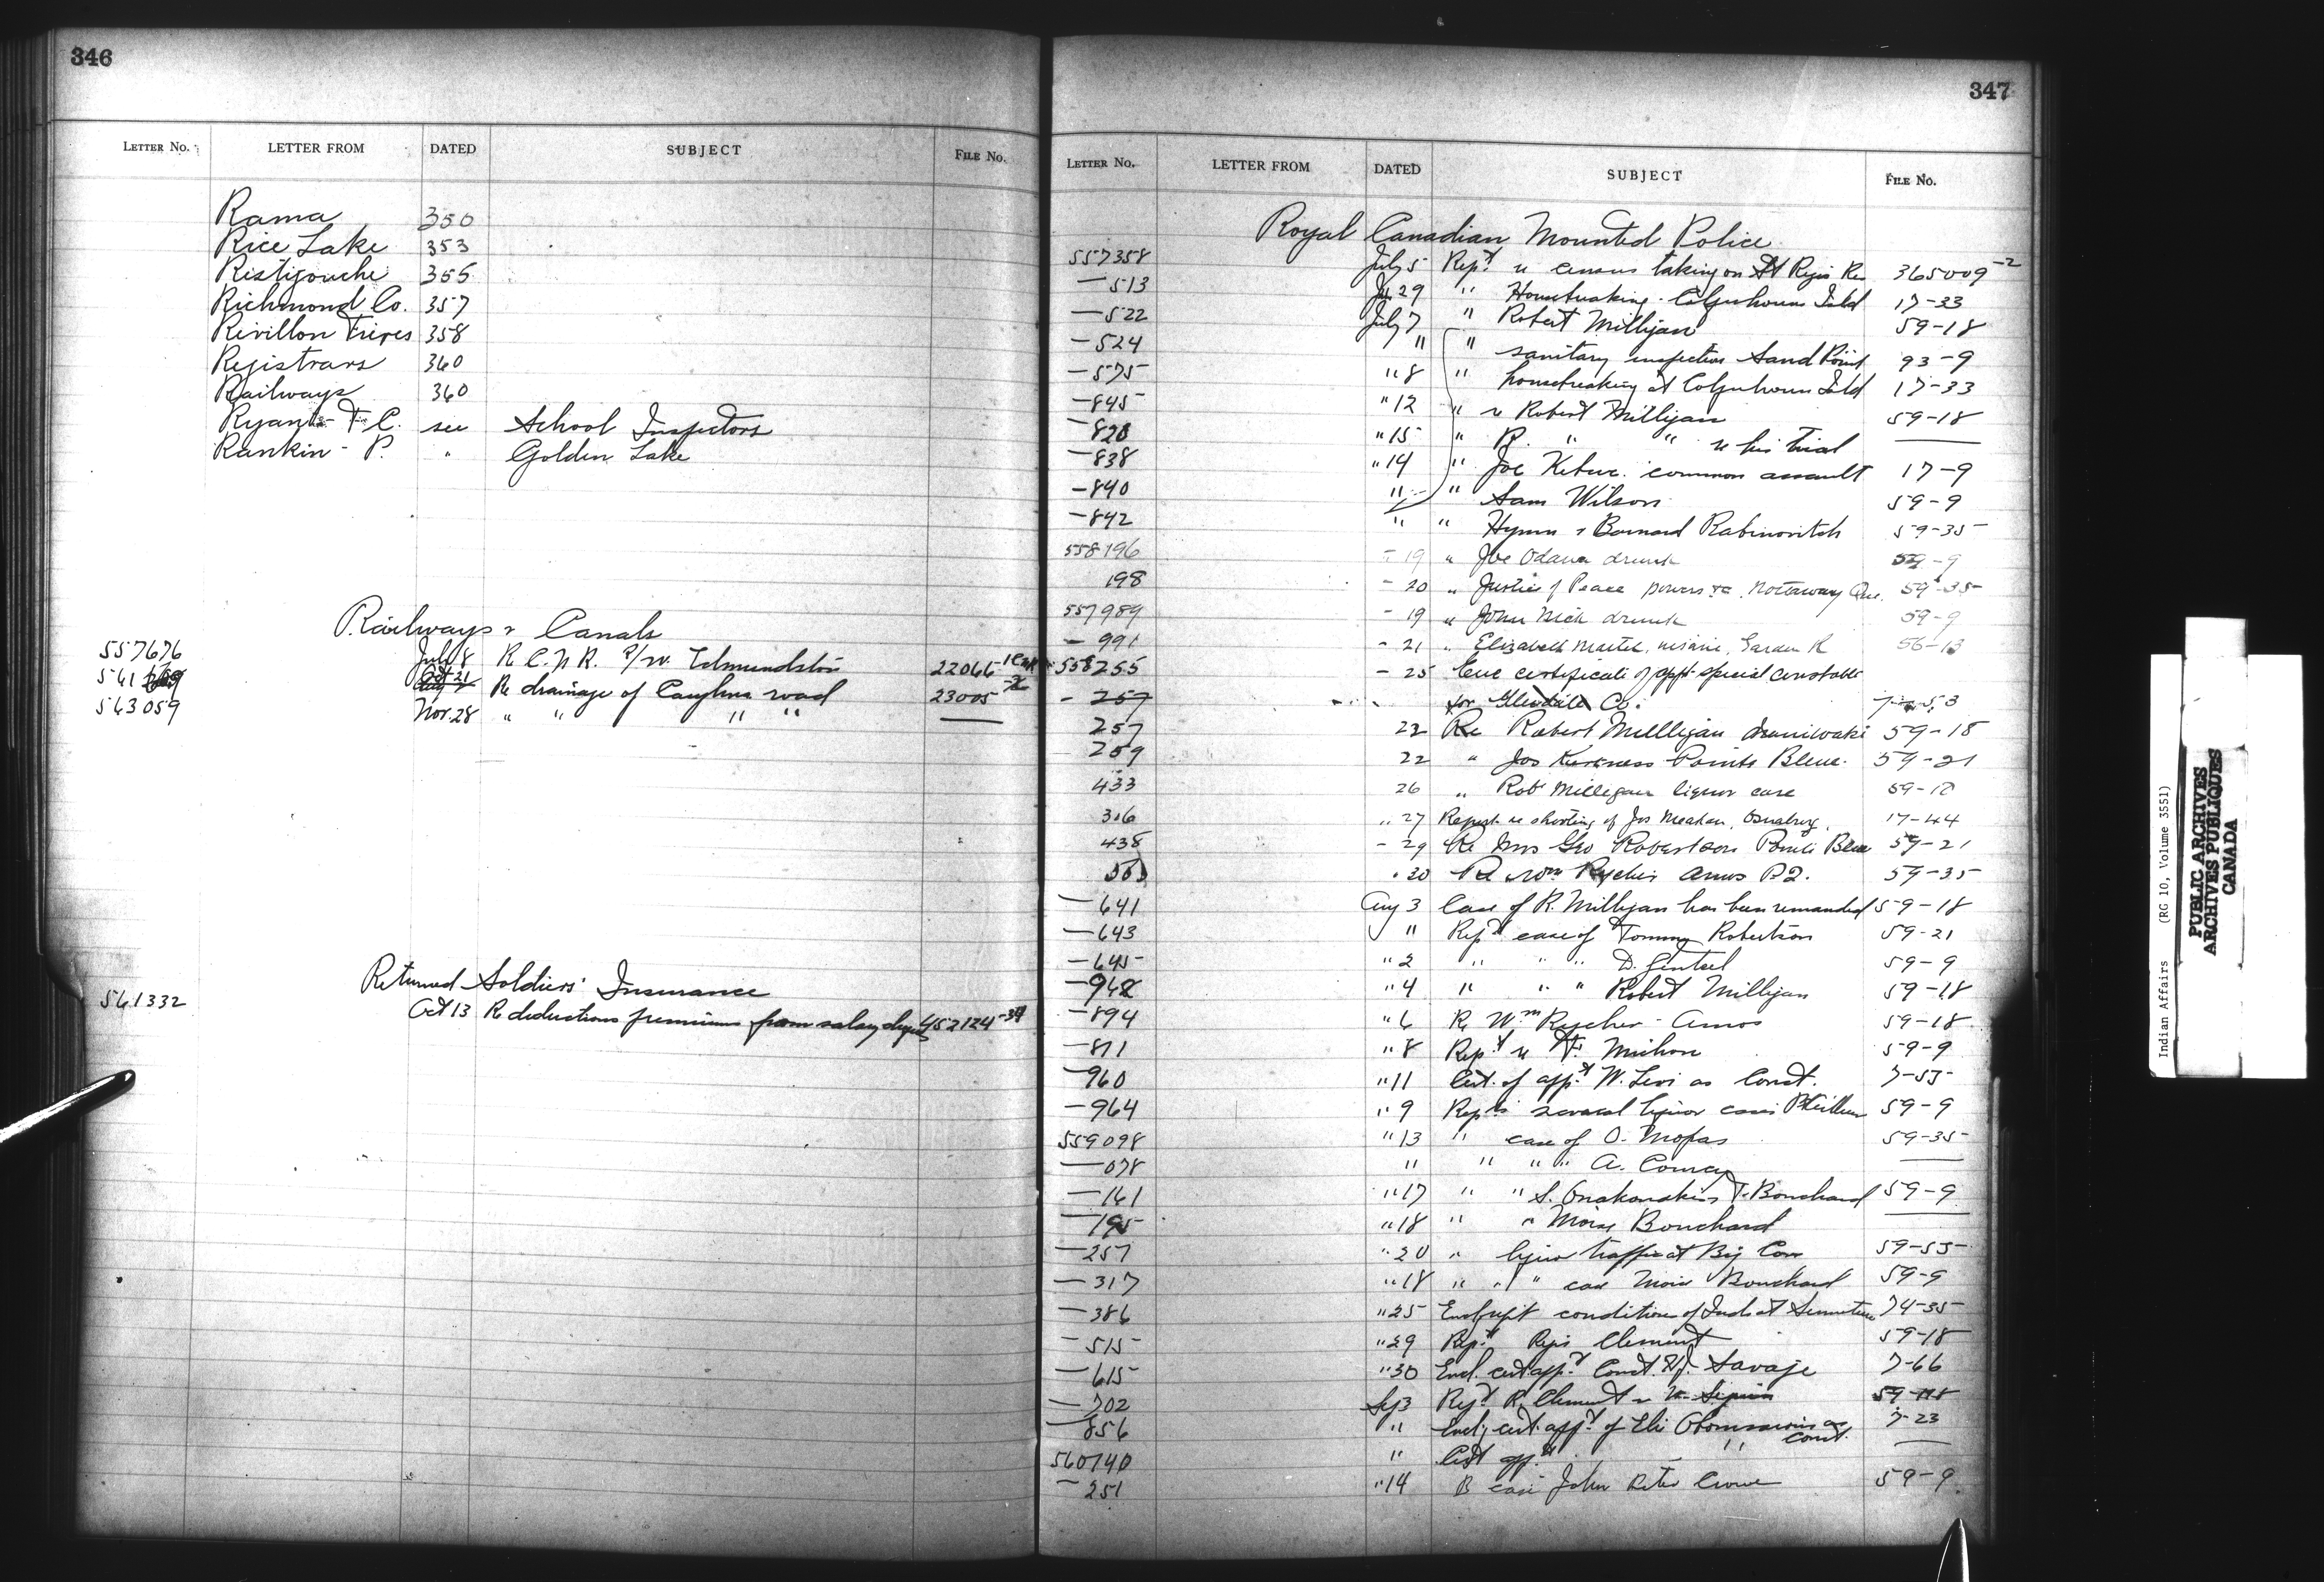 346
LETTER No. LETTER FROM DATED SUBJECT FILE No.
Rama 350
Rice Lake 353
Ristigouche 355
Richmond Co. 357
Revillon Freres 358
Registrars 360
Railways 360
Ryan - T. C. see School Inspectors
Rankin - P. " Golden Lake
Railways & Canals
557676 July 8 R C. N R. r/w. Edmundston 22066
541 Oct 21 Re drainage of road 23005
563059 Nov. 28 " " " " —
Returned Soldiers' Insurance
561332 Oct 13 Re deductions premiums from salary 452124-39
347
LETTER No. LETTER FROM DATED SUBJECT FILE No.
Royal Canadian Mounted Police
557358 July 5 Rept. re census taking on St Regis Res 365009-2
— 513 Ju 29 " Housebreaking - Colquhoun Isld 17-33
— 522 July 7 " Robert Milligan 59-18
— 524 " " sanitary inspection Sand Point 93-9
— 575 " 8 " housebreaking at Colquhoun Isld 17-33
— 845 " 12 " re Robert Milligan 59-18
— 828 " 15 " R. " " re his trial —
— 838 " 14 " Joe common assault 17-9
— 840 " " Sam Wilson 59-9
— 842 " " Hyman & Barnard Rabinovitch 59-35
558196 - 19 " Joe Odawa drunk 59-9
198 - 20 " Justice of Peace powers &c. Nottaway Que. 59-35
557989 - 19 " John Mick drunk 59-9
- 991 - 21 " Elizabeth insane, Garden R 56-13
558255 - 25 Enc certificate of appt special constable
- 257 for Glendale Co. 7-53
257 22 Re Robert Millligan Maniwaki 59-18
259 22 " Jos Kurness Pointe Bleue. 59-21
433 26 " Robt Milligan liquor case 59-18
316 " 27 Report re shooting of Jos Meakan, Osnaburg. 17-44
438 - 29 Re Mrs Geo Robertson Pointe Bleue 59-21
563 " 30 Re Wm Rycher Amos P.Q. 59-35
— 641 Aug 3 Case of R. Milligan has been remanded 59-18
— 643 " Rept case of Tommy Robertson 59-21
— 645 " 2 " " " D. Gentsel 59-9
— 948 " 4 " " " Robert Milligan 59-18
— 894 " 6 Re Wm Rycher - Amos 59-18
— 811 " 8 Rept re F. Michon 59-9
— 960 " 11 Cert. of appt W. Levi as Const. 7-55
— 964 " 9 Repts several liquor cases 59-9
559098 " 13 " case of O. Mofas 59-35
— 078 " " " " A. Comeay —
— 161 " 17 " " S. Onakanakis T. Bouchard 59-9
— 195 " 18 " " Moise Bouchard —
— 257 " 20 " liquor traffic at Big Cove 59-55
— 317 " 18 " " " case Moise Bouchard 59-9
— 386 " 25 Encl rept condition of Inds at 74-35
— 515 " 29 Rept. Regis Clement 59-18
— 615 " 30 Encl. cert appt Const. Savage 7-66
— 702 Sep 3 Rept R. Clement 59-18
— 856 " Encl'g cert. appt of Eli as const. 7-23
560140 " Cert appt " —
— 251 " 14 Re case John Peter Crowe 59-9
Indian Affairs (RG 10, Volume 3551)
PUBLIC ARCHIVES
ARCHIVES PUBLIQUES
CANADA